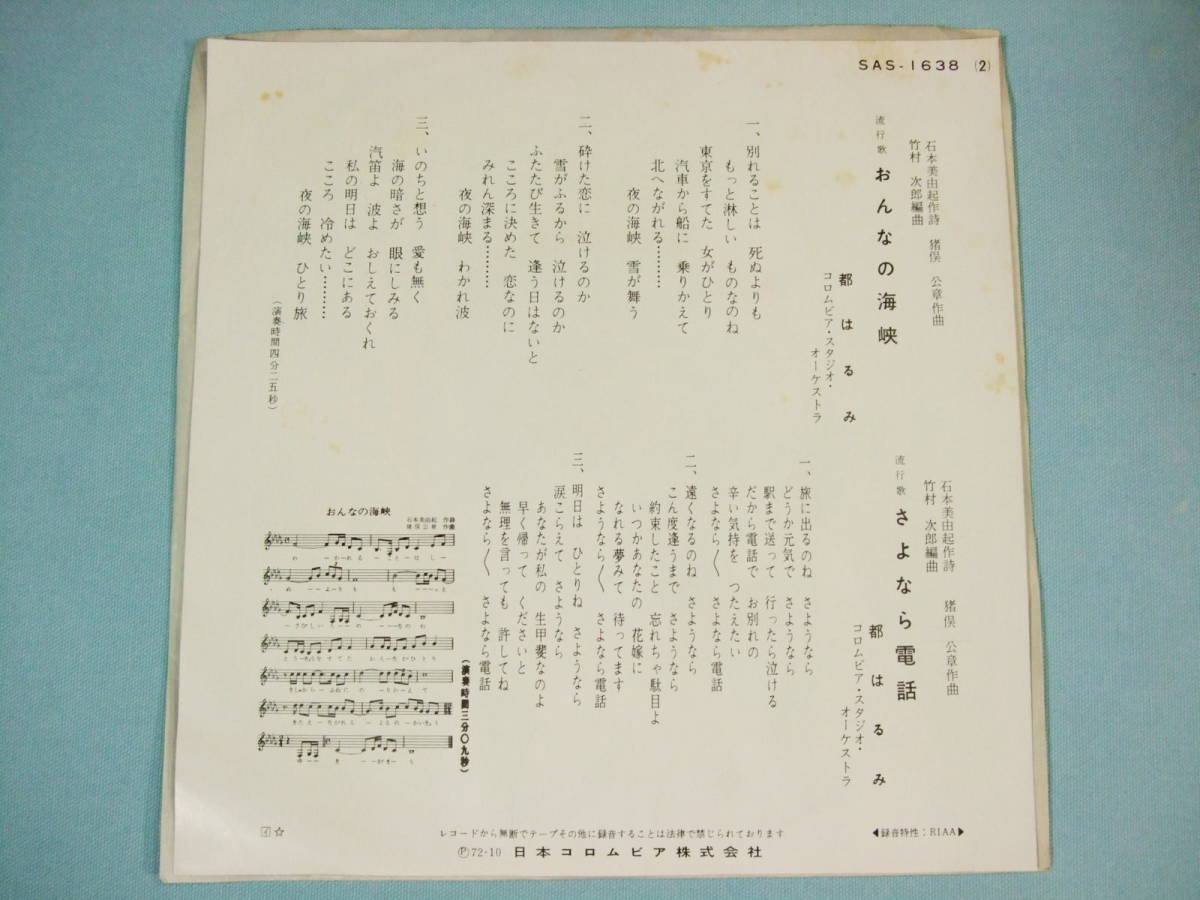 SAS-1638 (2)
石本美由起作詩 猪俣 公章作曲
竹村 次郎編曲
流行歌 おんなの海峡
都はるみ
コロムビア・スタジオ・
オーケストラ
一、別れることは 死ぬよりも
もっと淋しい ものなのね
東京をすてた 女がひとり
汽車から船に 乗りかえて
北へながれる………
夜の海峡 雪が舞う
二、砕けた恋に 泣けるのか
雪がふるから 泣けるのか
ふたたび生きて 逢う日はないと
こころに決めた 恋なのに
みれん深まる………
夜の海峡 わかれ波
三、いのちと想う 愛も無く
海の暗さが 眼にしみる
汽笛よ 波よ おしえておくれ
私の明日は どこにある
こころ 冷めたい………
夜の海峡 ひとり旅
(演奏時間四分二五秒)
石本美由起作詩 猪俣 公章作曲
竹村 次郎編曲
流行歌 さよなら電話
都はるみ
コロムビア・スタジオ・
オーケストラ
一、旅に出るのね さようなら
どうか元気で さようなら
駅まで送って 行ったら泣ける
だから電話で お別れの
辛い気持を つたえたい
さよなら〱 さよなら電話
二、遠くなるのね さようなら
こん度逢うまで さようなら
約束したこと 忘れちゃ駄目よ
いつかあなたの 花嫁に
なれる夢みて 待ってます
さようなら〱 さよなら電話
三、明日は ひとりね さようなら
涙こらえて さようなら
あなたが私の 生甲斐なのよ
早く帰って くださいと
無理を言っても 許してね
さよなら〱 さよなら電話
(演奏時間三分〇九秒)
おんなの海峡
石本美由起 作詩
猪俣公章 作曲
レコードから無断でテープその他に録音することは法律で禁じられております
Ⓟ72・10 日本コロムビア株式会社
◀録音特性:RIAA▶
イ ☆